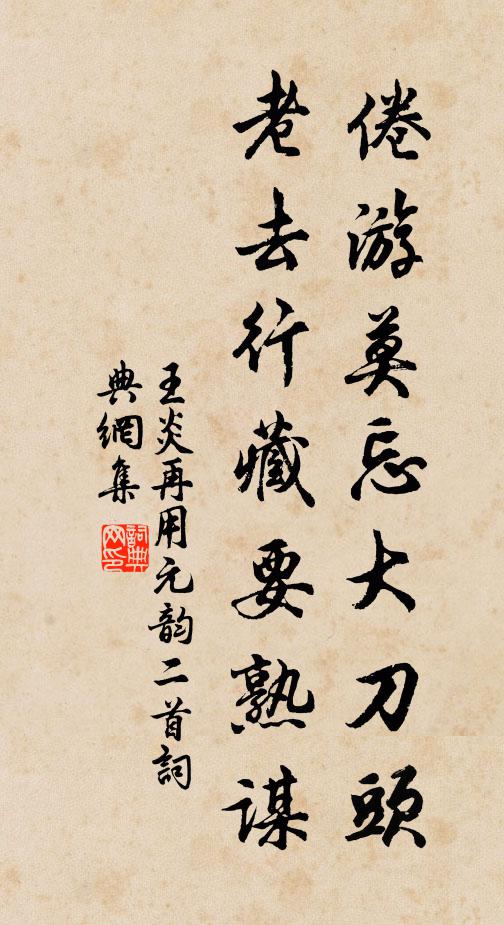 倦游莫忘大刀頭
老去行藏要熟謀
王炎再用元韵二首詞
典網集
詞典
网印